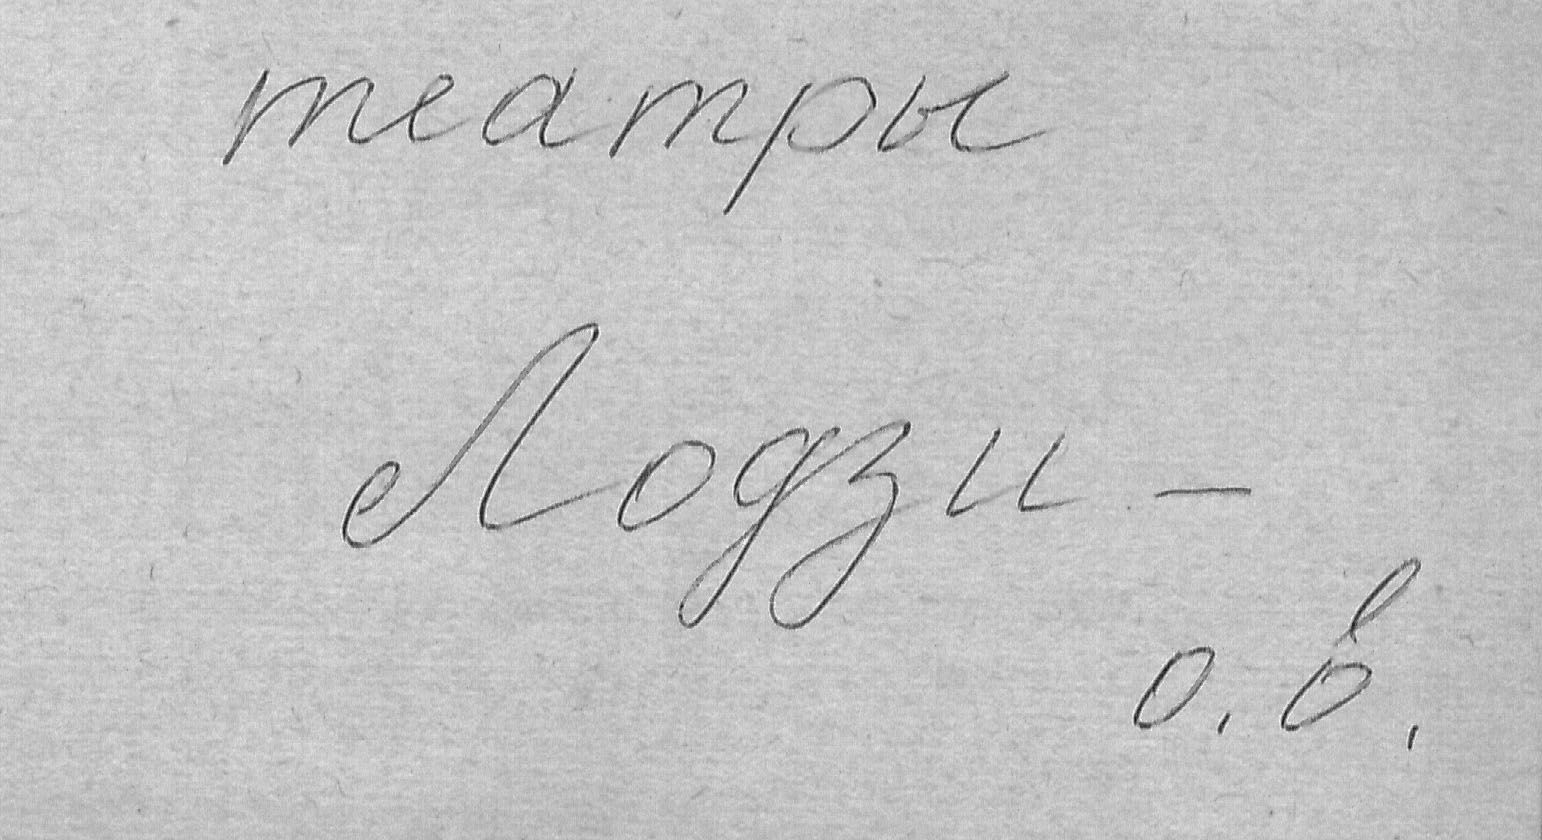 театры
Лодзи –
о.в.